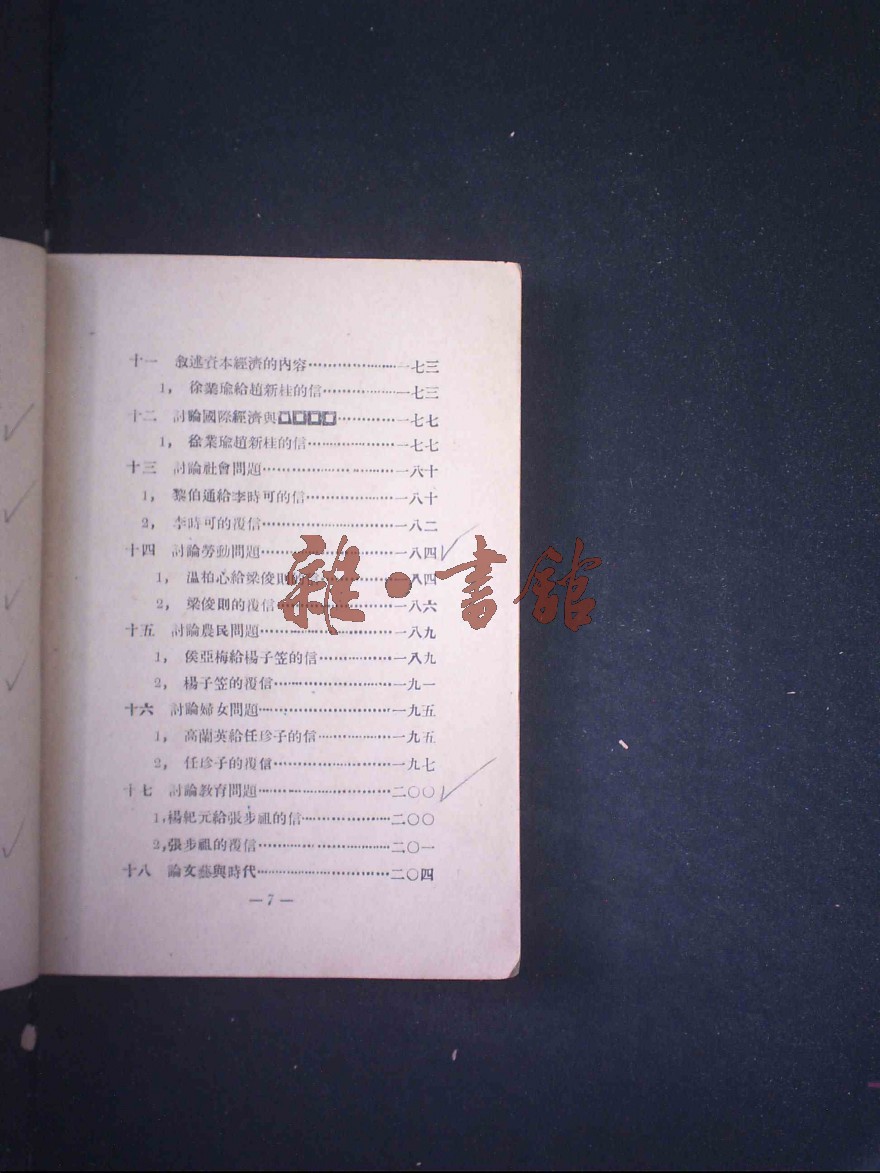 十一 敘述資本經濟的內容…………………一七三
1， 徐業瑜給趙新桂的信………………一七三
十二 討論國際經濟與□□□□……………一七七
1， 徐業瑜趙新桂的信…………………一七七
十三 討論社會問題…………………………一八十
1， 黎伯通給李時可的信………………一八十
2， 李時可的覆信………………………一八二
十四 討論勞動問題…………………………一八四
1， 温柏心給梁俊則的信………………一八四
2， 梁俊則的覆信………………………一八六
十五 討論農民問題…………………………一八九
1， 侯亞梅給楊子笠的信………………一八九
2， 楊子笠的覆信………………………一九一
十六 討論婦女問題…………………………一九五
1， 高蘭英給任珍子的信………………一九五
2， 任珍子的覆信………………………一九七
十七 討論教育問題…………………………二〇〇
1，楊紀元給張步祖的信…………………二〇〇
2，張步祖的覆信…………………………二〇一
十八 論文藝與時代…………………………二〇四
— 7 —
雜·書館